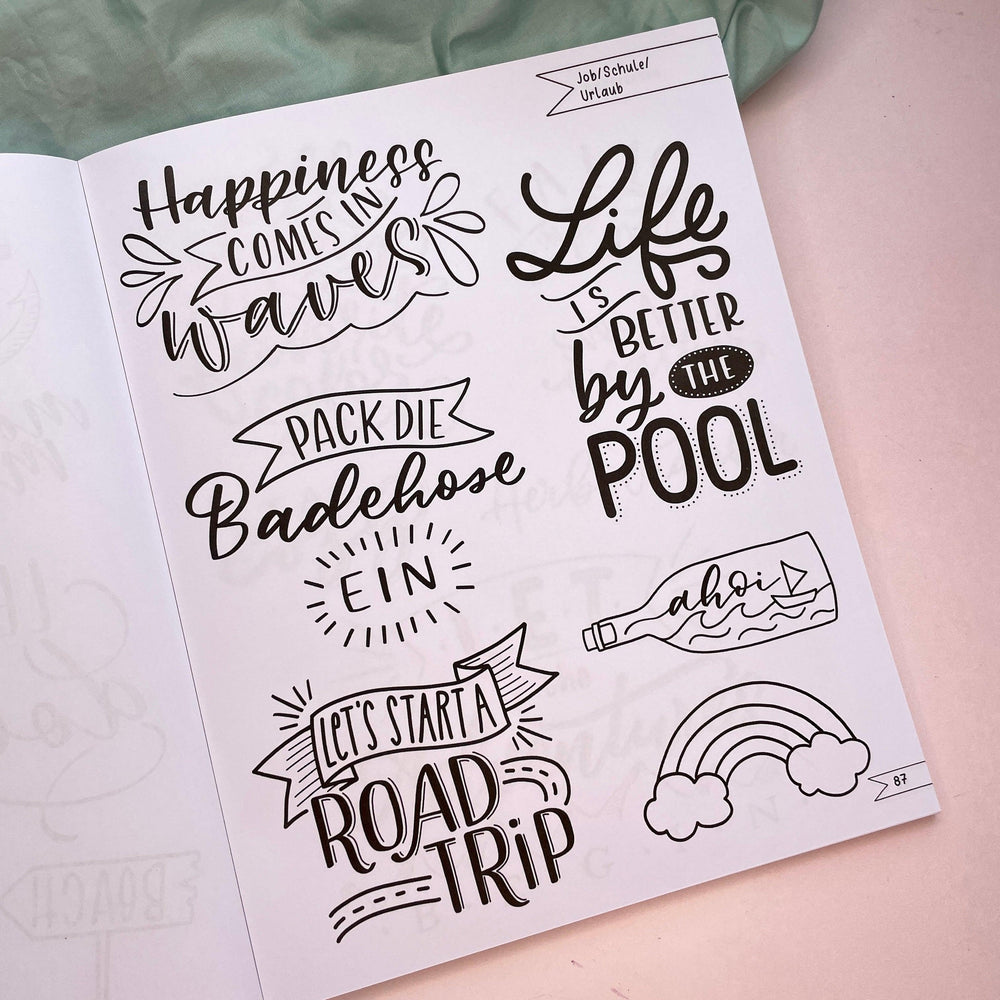 Job/Schule/
Urlaub
Happiness
COMES IN
waves
Life
IS
BETTER
by THE
POOL
PACK DIE
Badehose
EIN
ahoi
LET'S START A
ROAD
TRiP
87